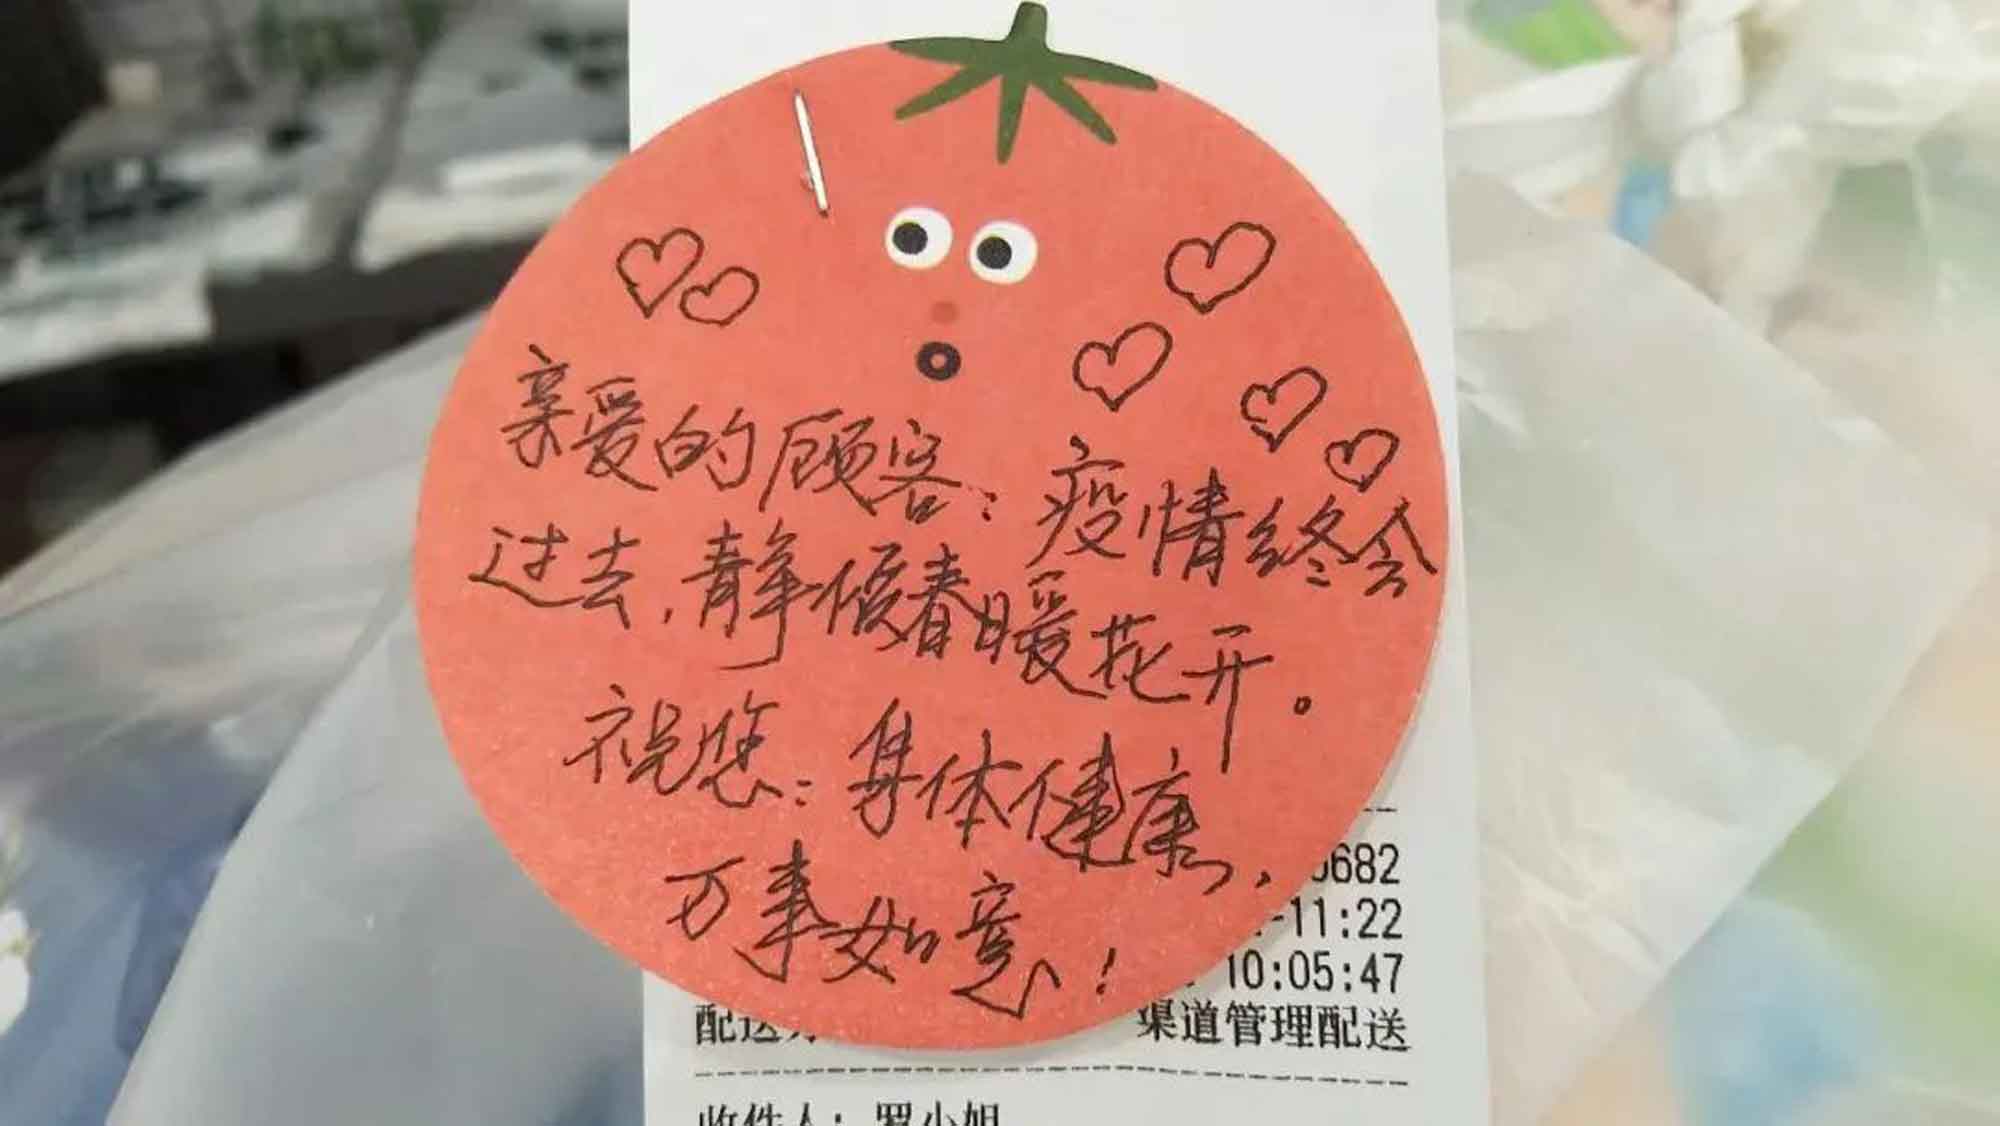 亲爱的顾客：疫情终会
过去，静候春暖花开。
祝您：身体健康，
万事如意！
682
-11:22
10:05:47
配送 渠道管理配送
收件人：罗小姐